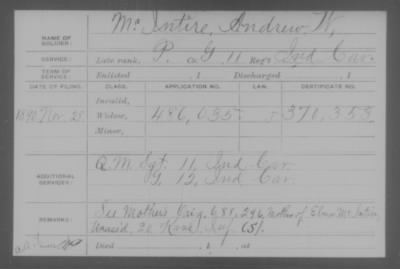 NAME OF SOLDIER: Mc Intire, Andrew W,
SERVICE: Late rank, P. Co. G, 11 Reg't Ind Cav.
TERM OF SERVICE: Enlisted , 1 Discharged , 1
DATE OF FILING. CLASS. APPLICATION NO. LAW. CERTIFICATE NO.
Invalid,
1890 Nov. 25 Widow, 486,035 370,353
Minor,
ADDITIONAL SERVICES: Q.M. Sgt. 11, Ind Cav.
G. 12, Ind Cav.
REMARKS: See Mothers Orig. 681,296, Mother of Elmer McIntire,
20 Kans. Inf. (S).
Died , 1 , at